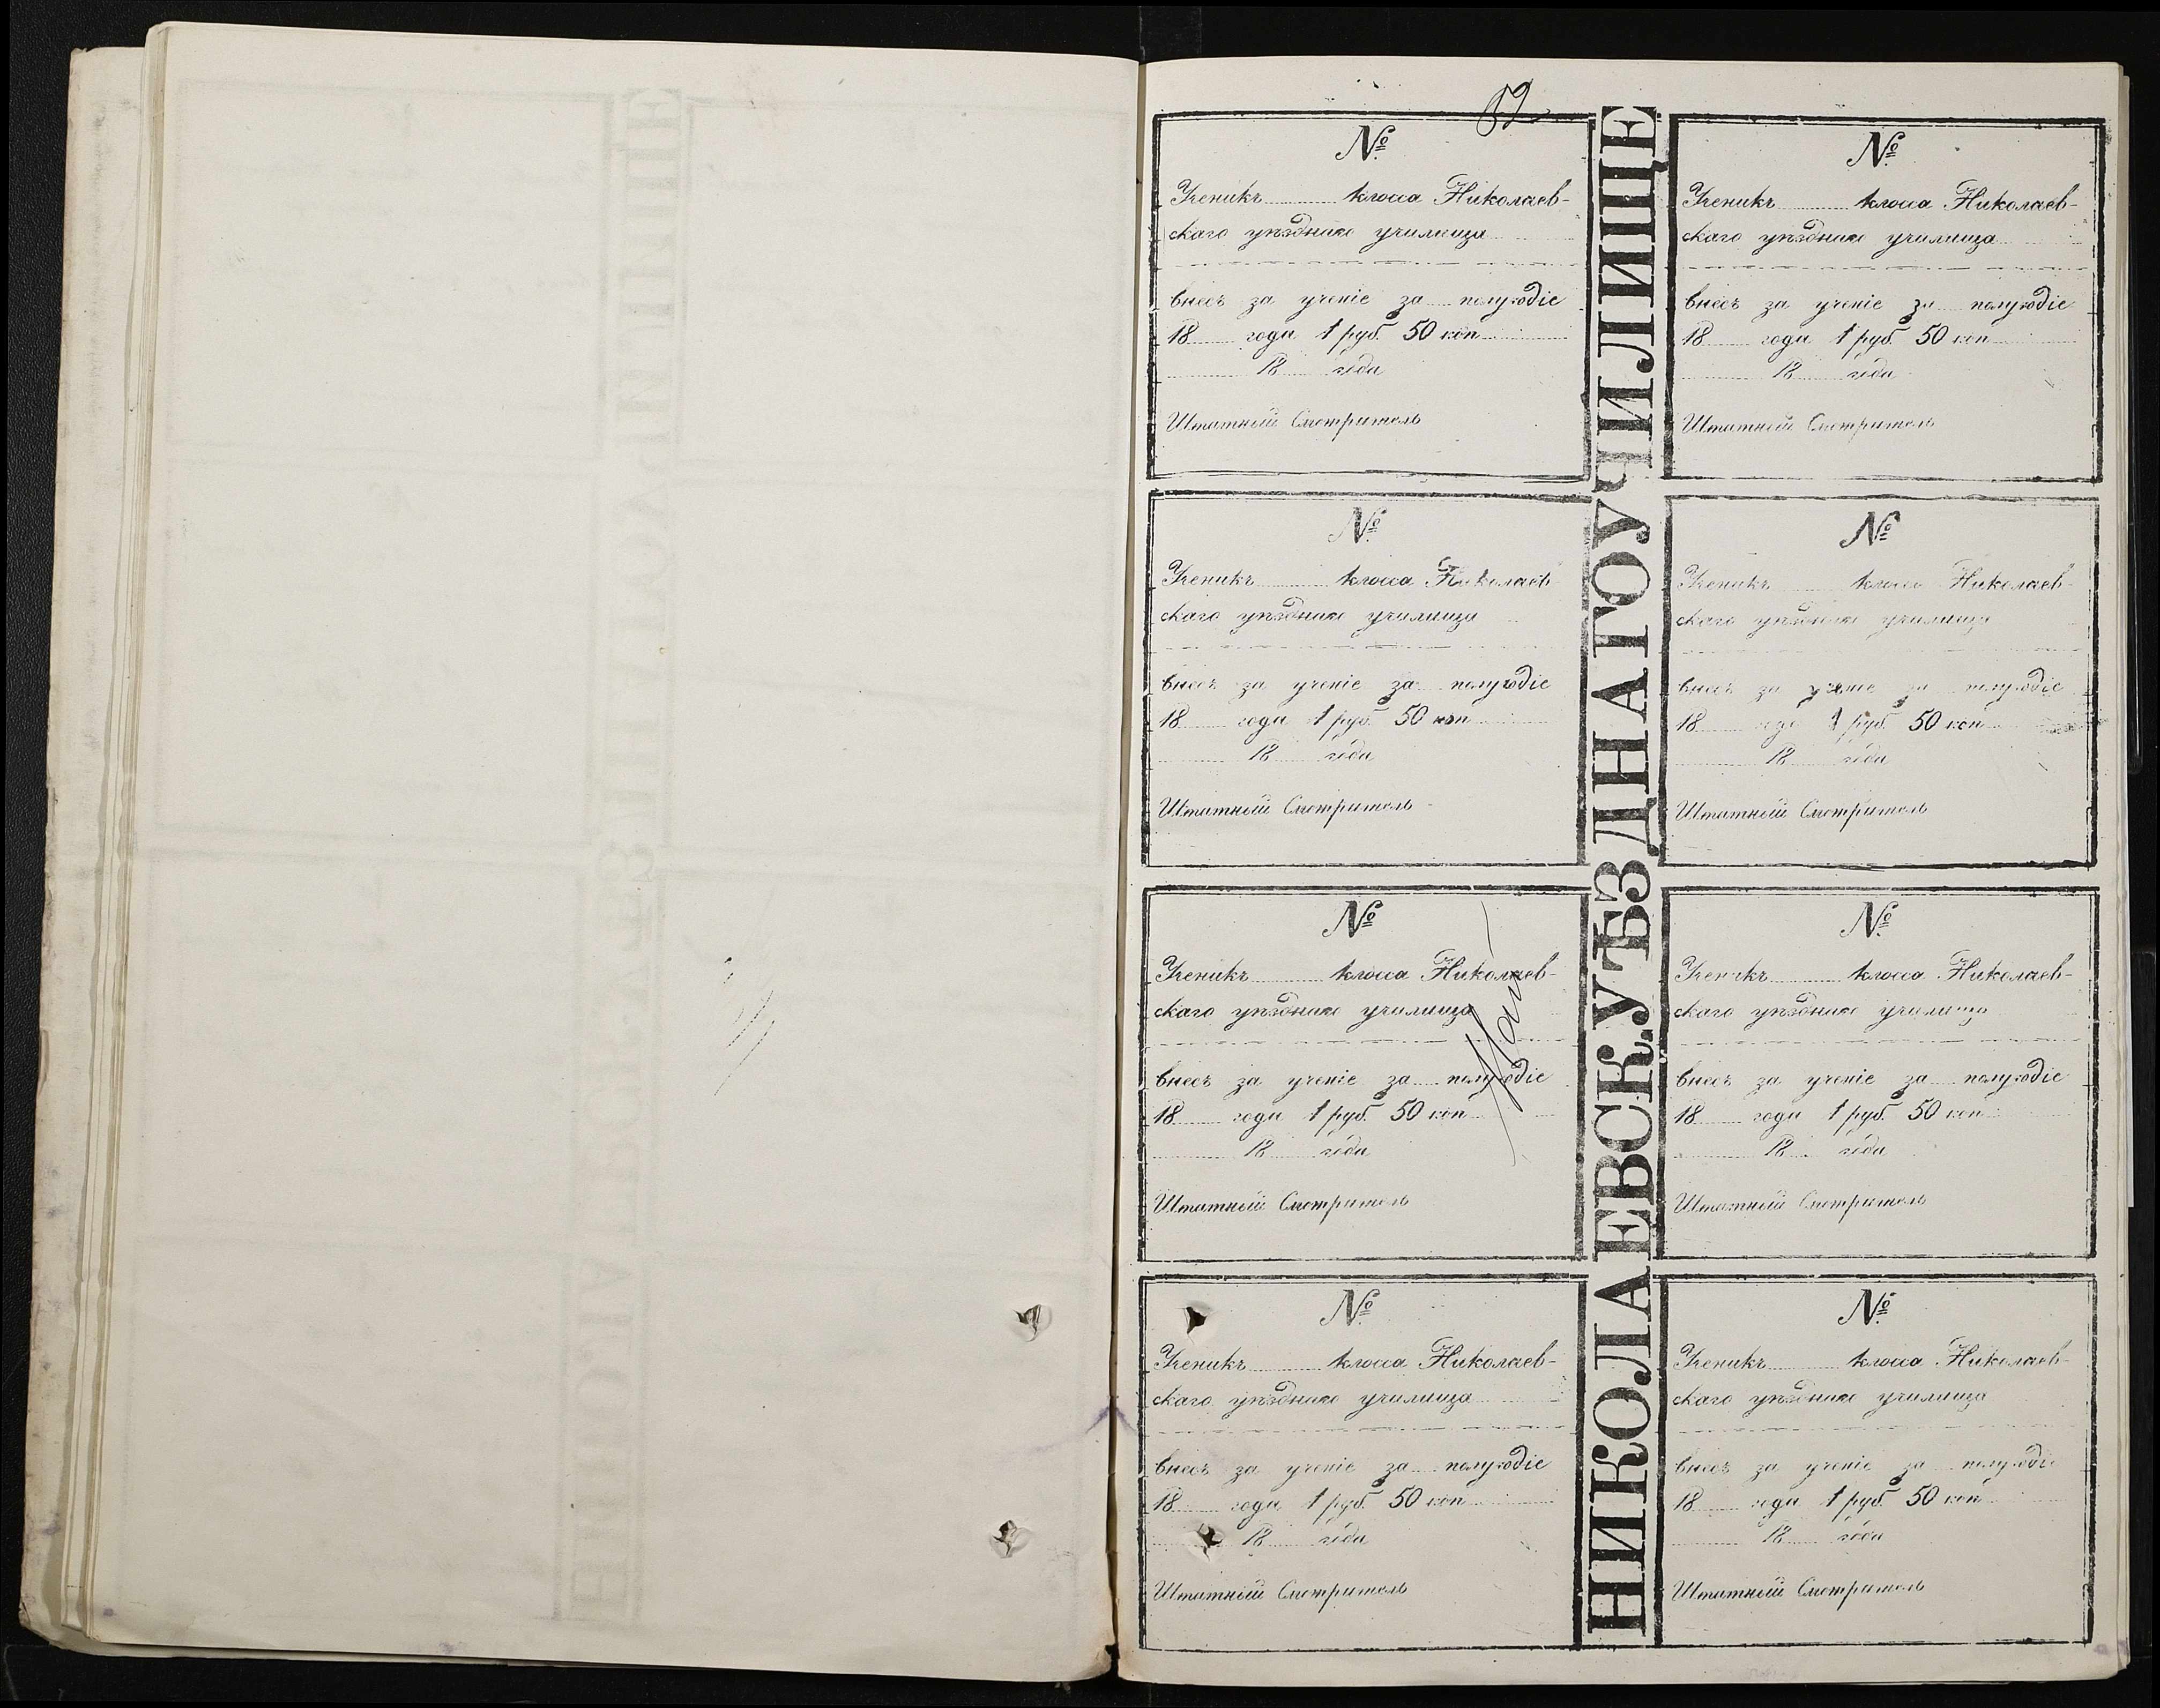 52
№
Ученикъ класса Николаев-
скаго уѣзднаго училища
внесъ за ученіе за полугодіе
18 года 1 руб. 50 коп
18 года
Штатный Смотритель
№
Ученикъ класса Николаев-
скаго уѣзднаго училища
внесъ за ученіе за полугодіе
18 года 1 руб. 50 коп
18 года
Штатный Смотритель
№
Ученикъ класса Николаев-
скаго уѣзднаго училища
внесъ за ученіе за полугодіе
18 года 1 руб. 50 коп
18 года
Штатный Смотритель
№
Ученикъ класса Николаев-
скаго уѣзднаго училища
внесъ за ученіе за полугодіе
18 года 1 руб. 50 коп
18 года
Штатный Смотритель
НИКОЛАЕВСК. УѢЗДНАГО УЧИЛИЩЕ
№
Ученикъ класса Николаев-
скаго уѣзднаго училища
внесъ за ученіе за полугодіе
18 года 1 руб. 50 коп
18 года
Штатный Смотритель
№
Ученикъ класса Николаев-
скаго уѣзднаго училища
внесъ за ученіе за полугодіе
18 года 1 руб. 50 коп
18 года
Штатный Смотритель
№
Ученикъ класса Николаев-
скаго уѣзднаго училища
внесъ за ученіе за полугодіе
18 года 1 руб. 50 коп
18 года
Штатный Смотритель
№
Ученикъ класса Николаев-
скаго уѣзднаго училища
внесъ за ученіе за полугодіе
18 года 1 руб. 50 коп
18 года
Штатный Смотритель